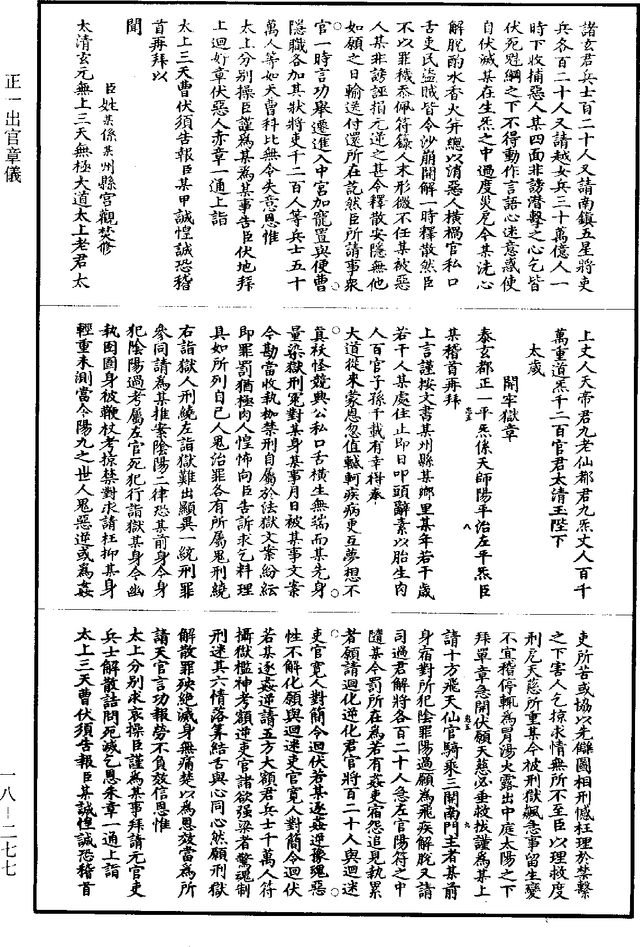 諸玄君兵士百二十人又請南鎮五星將吏
兵各百二十人又請越女兵三十萬億人一
時下收捕惡人某四面非謗潛擊之心乞皆
伏死魁綱之下不得動作言語心迷意惑使
自伏滅某在生炁之中過度災厄令某洗心
解脫酌水香火并總以消惡人橫禍官私口
舌吏民盜賊皆令沙崩開解一時釋散然臣
不以罪穢忝佩符籙人末形微不任某被惡
人某非謗誣捐元逆之甚令釋散安隱無他
如願之日輸送付還所在詑然臣所請事衆
官一時言功舉遷進入中宮加寵置與便曹
隱職各加其狀將吏千二百人等兵士五十
萬人等如天曹科比無令失意恩惟
太上分別操臣謹爲某爲某事告臣伏地拜
上迴好章伏惡人赤章一通上詣
太上三天曹伏須告報臣某甲誠惶誠恐稽
首再拜以
聞
臣姓某係某州縣宮觀焚修
太清玄元無上三天無極大道太上老君太
上丈人天帝君九老仙都君九炁丈人百千
萬重道炁千二百官君太清玉陛下
太歲
開牢獄章
泰玄都正一平炁係天師陽平治左平炁臣
某稽首再拜
上言謹按文書某州縣某鄉里某年若干歲
若干人某處住止即日叩頭辭素以胎生肉
人百官子孫千載有幸得奉
大道從來蒙恩忽值轗軻疾病更互夢想不
真祅怪競興公私口舌橫生無端而某先身
量染獄刑冤對某身某事月日被某事文案
今勘當收執枷禁刑自屬於法獄文案紛紜
即罪罰猶極肉人惶怖向臣告訴求乞料理
具如所列自已人鬼治罪各有所屬鬼刑繞
右詣獄人刑繞左詣獄難出顯異一統刑罪
參同請爲某推案陰陽二律恐某前身今身
犯陰陽過考屬左官死犯行詣獄某身今幽
執囹圄身被鞭杖考掠禁對求請枉抑某身
輕重未測當今陽九之世人鬼惡逆或爲姦
吏所苦或協以先讎圖相刑憾枉理於禁繫
之下害人乞掠求情無所不至臣以理救度
刑厄天慈所重某今被刑獄飆急事留生變
不宜稽停輒爲冒湯火露出中庭太陽之下
拜單章急開伏願天慈必垂救拔謹爲某上
請十方飛天仙官騎乘三開南門主者某前
身宿對所犯陰罪陽過願爲飛疾解脫又請
司過君解將各百二十人急左官陽符之中
隨某今罰所在爲若有姦吏宿怨追見執累
者願請迴化逆化君官將百二十人與迴迷
吏官寃人對簡令迴伏若某逐姦逆豫魂惡
性不解化願與迴迷吏官寃人對簡令迴伏
若某逐姦逆請五方大額君兵士十萬人符
攝獄檻神考額逆吏官諸欲强梁者驚魂制
刑迷其六情落筭結舌與心同心然願刑獄
解散罪殃絕滅身無痛楚以爲恩效當爲所
請天官言功報勞不負效信恩惟
太上分別求哀操臣謹爲某事拜請元官吏
兵士解散詰問死滅乞恩朱章一通上詣
太上三天曹伏須告報臣某誠惶誠恐稽首
正一出官章儀
一八—二七七